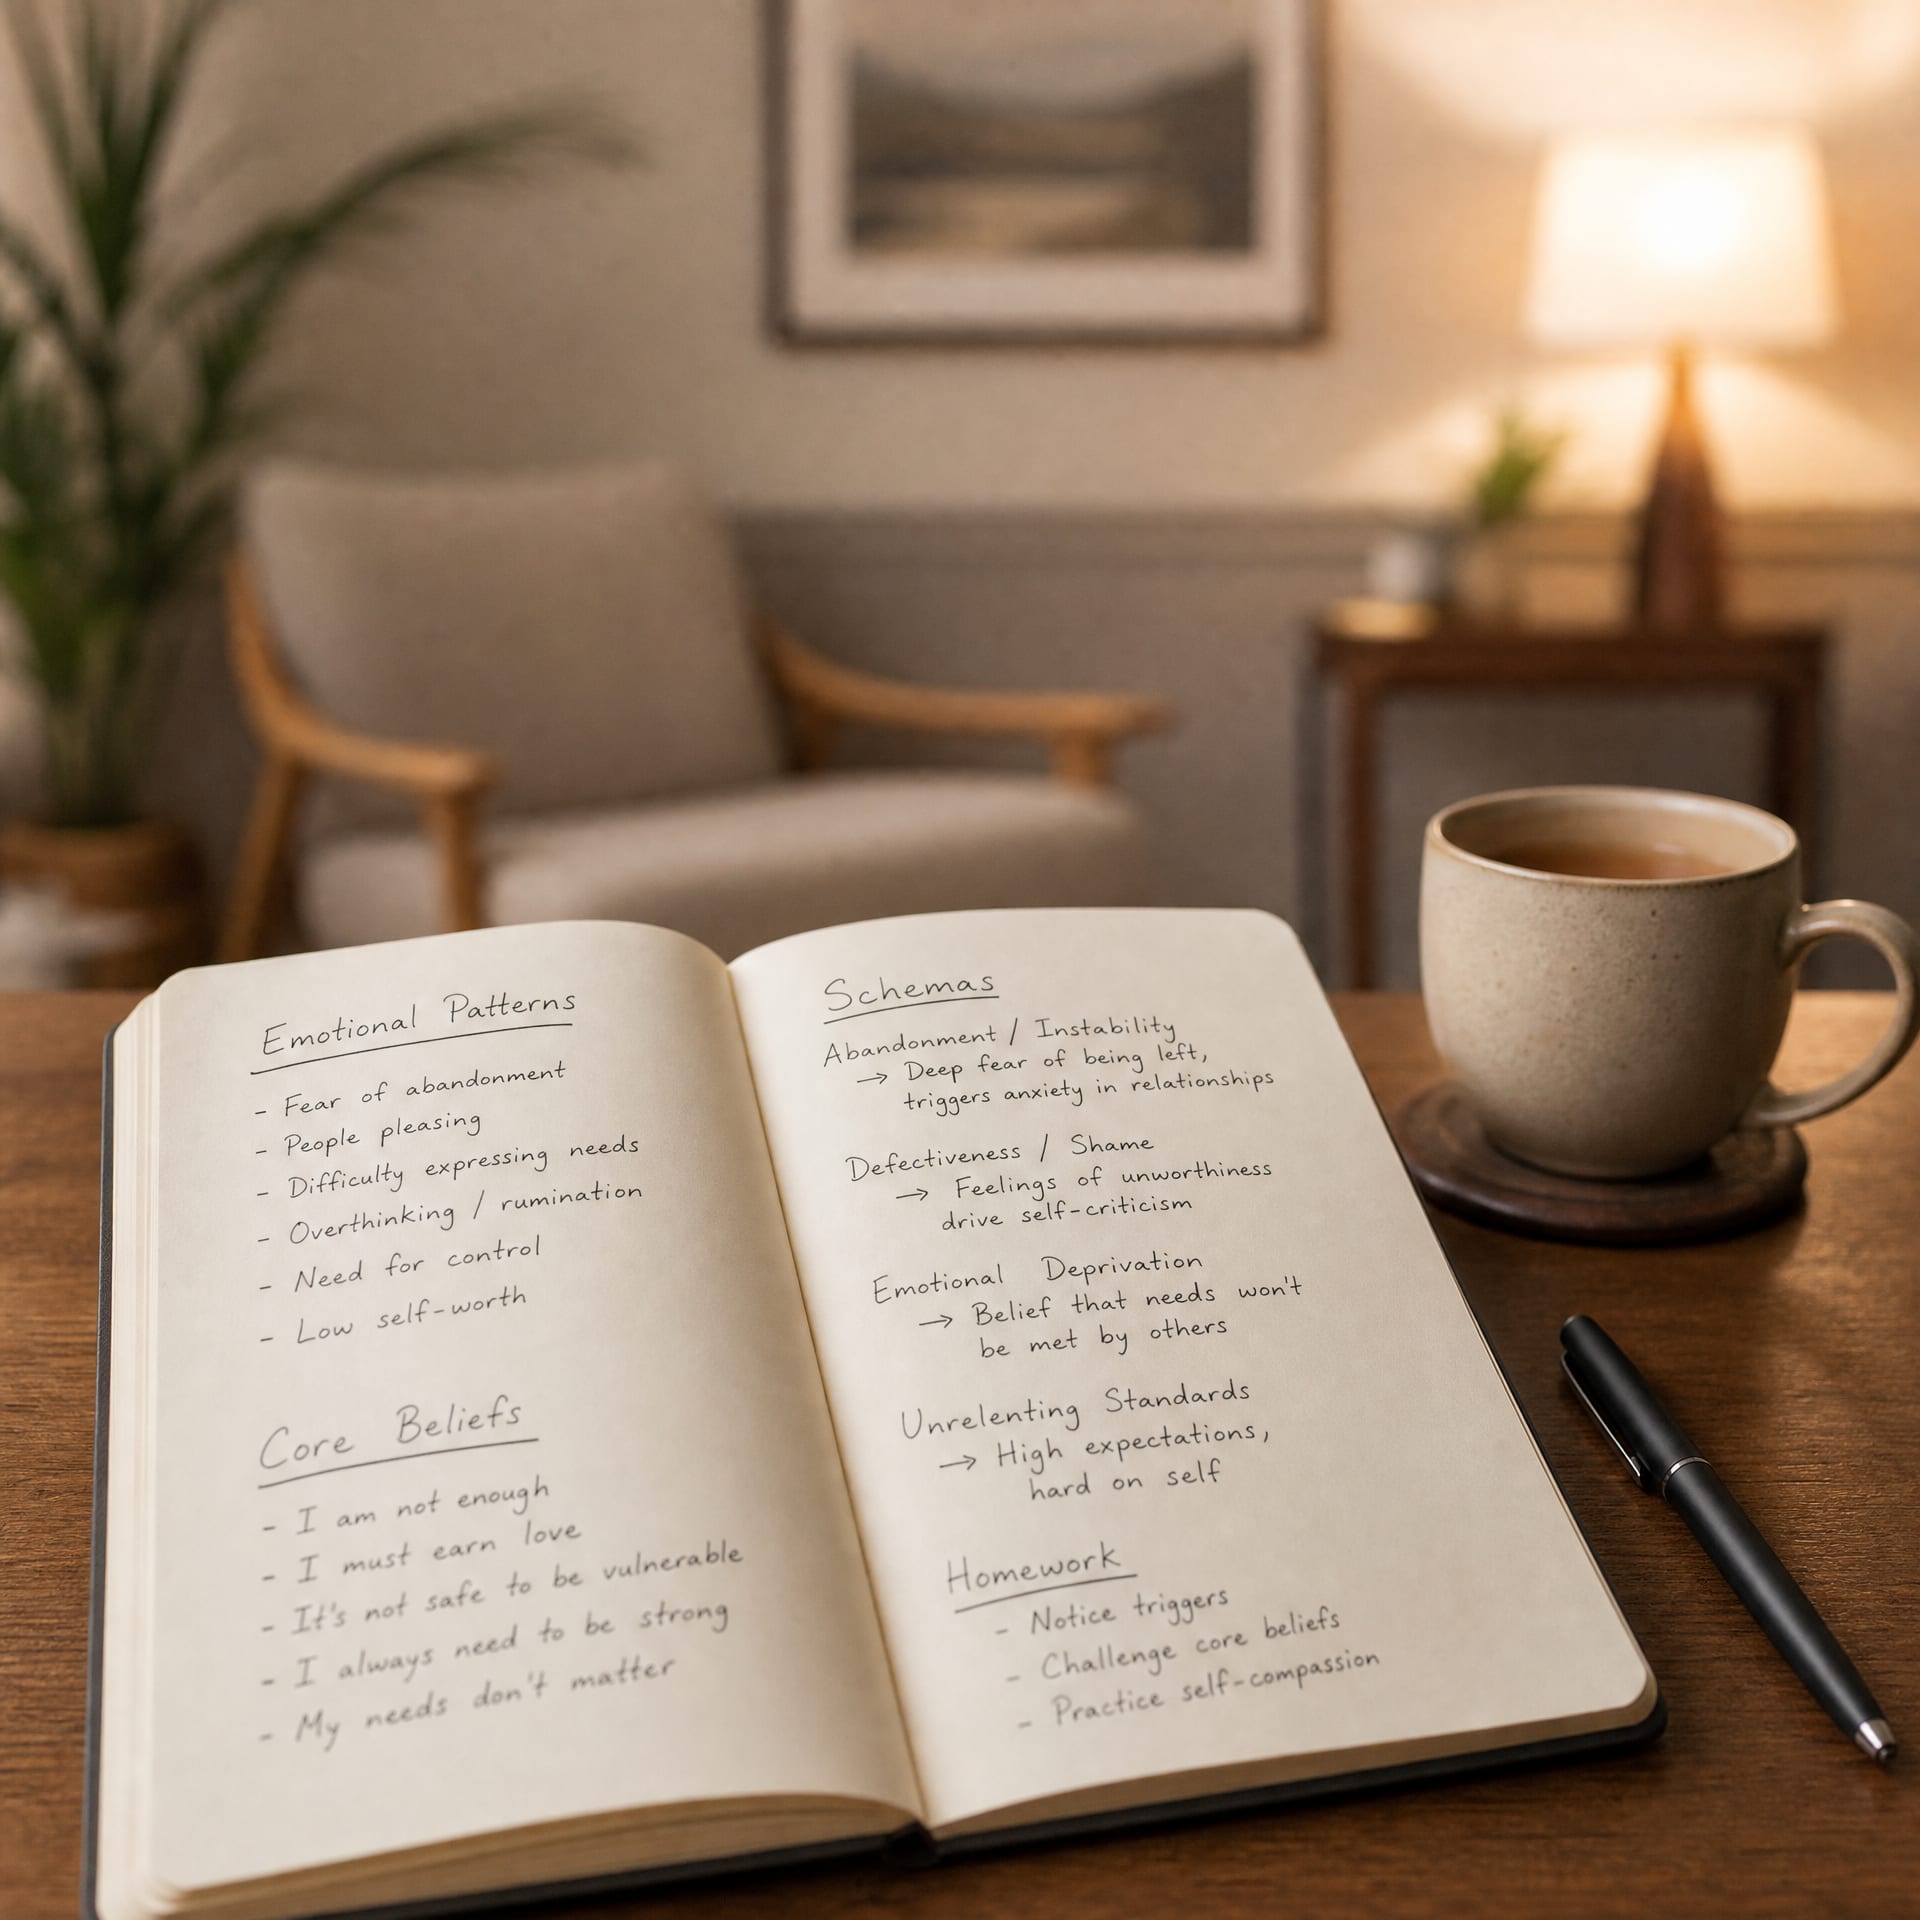 Emotional Patterns
- Fear of abandonment
- People pleasing
- Difficulty expressing needs
- Overthinking / rumination
- Need for control
- Low self-worth
Core Beliefs
- I am not enough
- I must earn love
- It's not safe to be vulnerable
- I always need to be strong
- My needs don't matter
Schemas
Abandonment / Instability
→ Deep fear of being left,
triggers anxiety in relationships
Defectiveness / Shame
→ Feelings of unworthiness
drive self-criticism
Emotional Deprivation
→ Belief that needs won't
be met by others
Unrelenting Standards
→ High expectations,
hard on self
Homework
- Notice triggers
- Challenge core beliefs
- Practice self-compassion